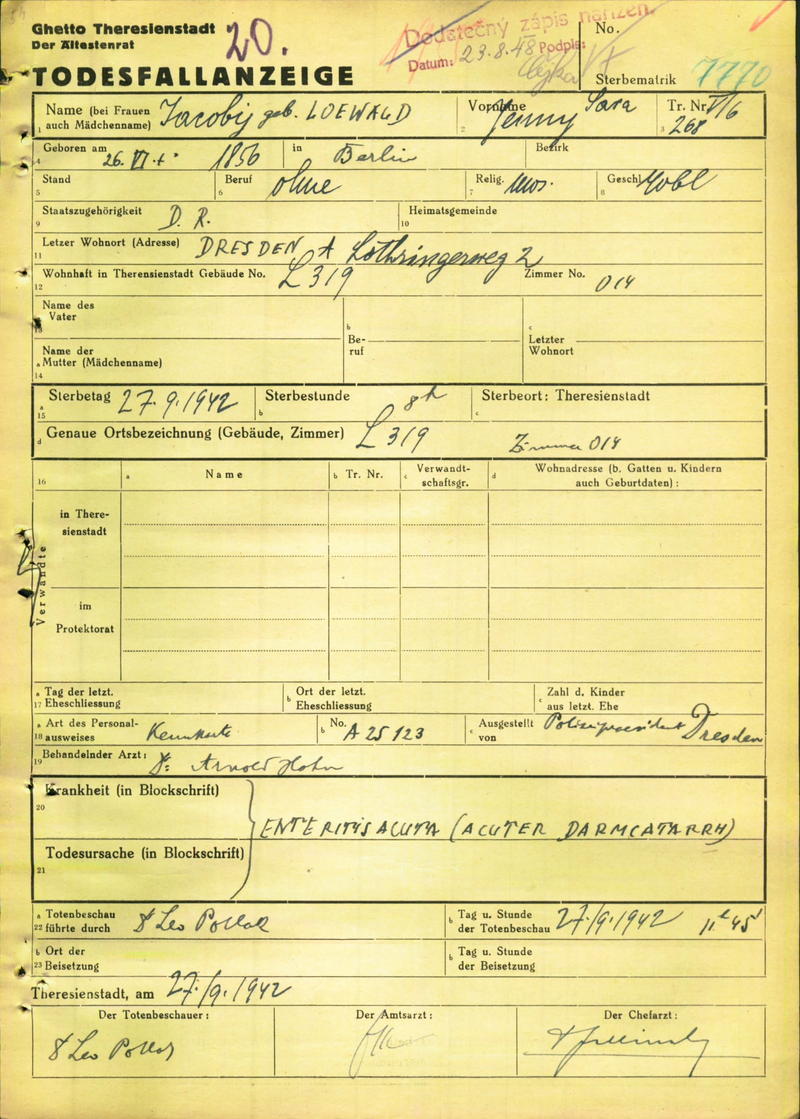 Ghetto Theresienstadt 20.
Der Ältestenrat
Dodatečný zápis nařízen.
Datum: 23.8.48 Podpis:
No.
TODESFALLANZEIGE
Sterbematrik 7770
Name (bei Frauen auch Mädchenname) Jacobij geb. LOEWALD
Vorname Jenny Sara
Tr. Nr. V/6
268
1 2 3
4 Geboren am 26. VI. 1856 in Berlin Bezirk
5 Stand 6 Beruf ohne 7 Relig. mos. 8 Geschl.
9 Staatszugehörigkeit D. R. 10 Heimatsgemeinde
11 Letzer Wohnort (Adresse) DRESDEN A Lothringerweg 2
12 Wohnhaft in Therensienstadt Gebäude No. L 319 Zimmer No. 014
Name des Vater
b Beruf
c Letzter Wohnort
Name der
a Mutter (Mädchenname)
14
a 15 Sterbetag 27.9.1942 b Sterbestunde 8h c Sterbeort: Theresienstadt
d Genaue Ortsbezeichnung (Gebäude, Zimmer) L 319 Zimmer 014
16 a Name b Tr. Nr. c Verwandtschaftsgr. d Wohnadresse (b. Gatten u. Kindern auch Geburtdaten):
Verwandte
in Theresienstadt
im Protektorat
a 17 Tag der letzt. Eheschliessung b Ort der letzt. Eheschliessung c Zahl d. Kinder aus letzt. Ehe
a 18 Art des Personalausweises Kennkarte b No. A 25123 c Ausgestellt von Polizeipraesident Dresden
19 Behandelnder Arzt: Dr. Arnold Hahn
Krankheit (in Blockschrift)
20
ENTERITIS ACUTA (ACUTER DARMCATARRH)
Todesursache (in Blockschrift)
21
a 22 Totenbeschau führte durch Dr Leo Pollak b Tag u. Stunde der Totenbeschau 27/9.1942 11h 45'
b 23 Ort der Beisetzung b Tag u. Stunde der Beisetzung
Theresienstadt, am 27./9.1942
Der Totenbeschauer: Der Amtsarzt: Der Chefarzt:
Dr Leo Pollak